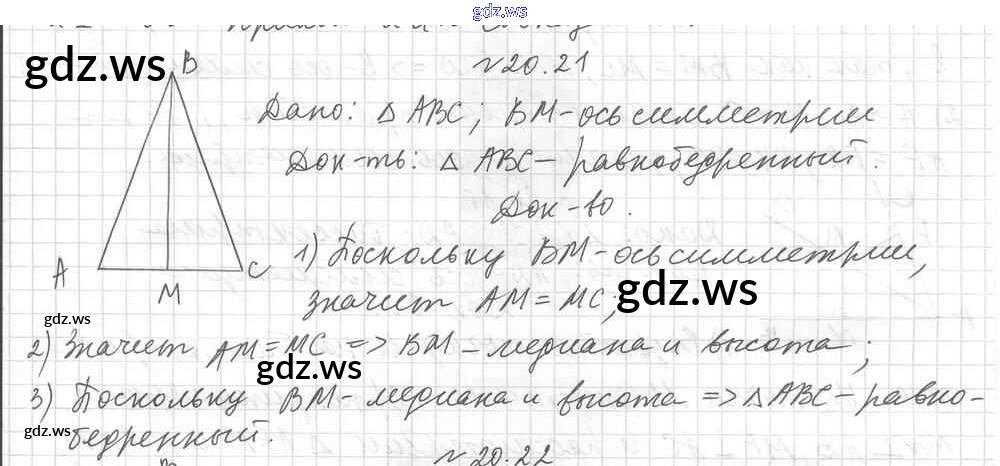 gdz.ws
№20.21
B
Дано: △ABC; BM-ось симметрии
Док-ть: △ABC-равнобедренный.
Док-во.
1) Поскольку BM-ось симметрии,
A
C
M
значит AM=MC;
gdz.ws
gdz.ws
gdz.ws
2) Значит AM=MC => BM-медиана и высота;
gdz.ws
3) Поскольку BM-медиана и высота => △ABC-равно-
бедренный.
gdz.ws
№20.22